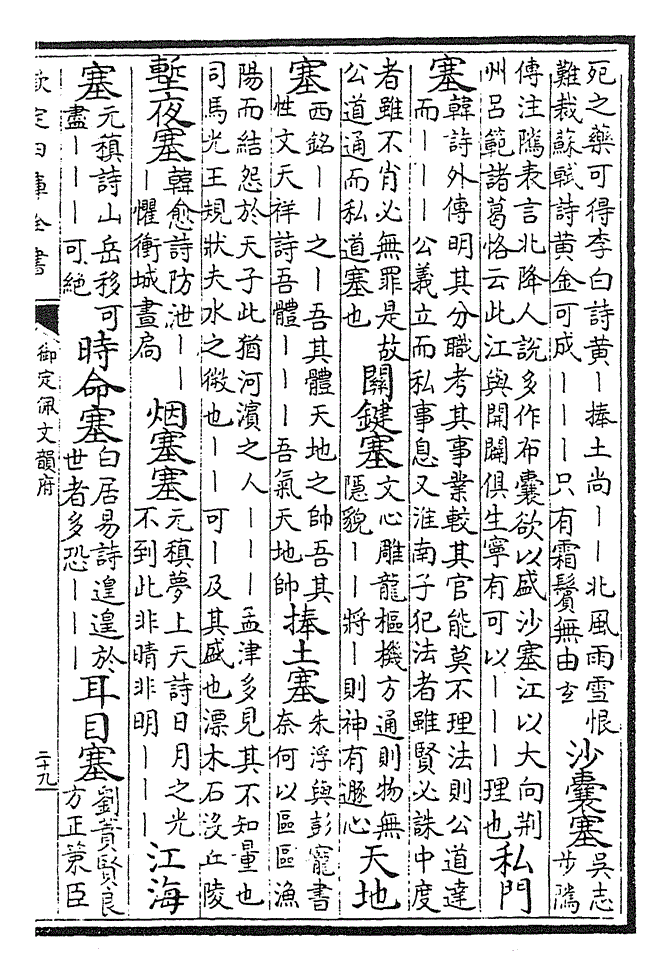 死之藥可得李白詩黃丨捧土尚丨丨北風雨雪恨
難裁蘇軾詩黃金可成丨丨丨只有霜鬢無由玄
沙囊塞
吳志
步隲
傳注隲表言北降人說多作布囊欲以盛沙塞江以大向荆
州呂範諸葛恪云此江與開闢俱生寧有可以丨丨丨理也
私門
塞
韓詩外傳明其分職考其事業較其官能莫不理法則公道達
而丨丨丨公義立而私事息又淮南子犯法者雖賢必誅中度
者雖不肖必無罪是故
公道通而私道塞也
關鍵塞
文心雕龍樞機方通則物無
隱貌丨丨將丨則神有遯心
天地
塞
西銘丨丨之丨吾其體天地之帥吾其
性文天祥詩吾體丨丨丨吾氣天地帥
捧土塞
朱浮與彭寵書
奈何以區區漁
陽而結怨於天子此猶河濱之人丨丨丨孟津多見其不知量也
司馬光王規狀夫水之微也丨丨可丨及其盛也漂木石沒丘陵
塹夜塞
韓愈詩防泄丨丨
丨懼衝城晝扃
烟塞塞
元稹夢上天詩日月之光
不到此非晴非明丨丨丨
江海
塞
元稹詩山岳移可
盡丨丨丨可絶
時命塞
白居易詩遑遑於
世者多恐丨丨丨
耳目塞
劉蕡賢良
方正策臣
欽定四庫全書
御定佩文韻府
二十九